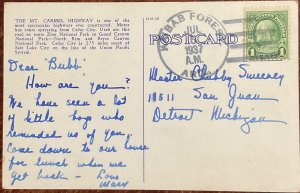 THE MT. CARMEL HIGHWAY is one of the
most spectacular highways ever constructed. Motor
buses operating from Cedar City, Utah use this
route to scenic Zion National Park to Grand Canyon
National Park—North Rim and Bryce Canyon
National Park. Cedar City is 275 miles south of
Salt Lake City on the line of the Union Pacific
System.
Dear Bubb:
How are you?
We have seen a lot
of little boys who
reminded us of you.
Come down to our house
for lunch when we
get back - Love
Mary
POSTCARD
FOREST
JUL
1937
A.M.
1
Master Chubby Sweeney
18511 San Juan
Detroit Michigan